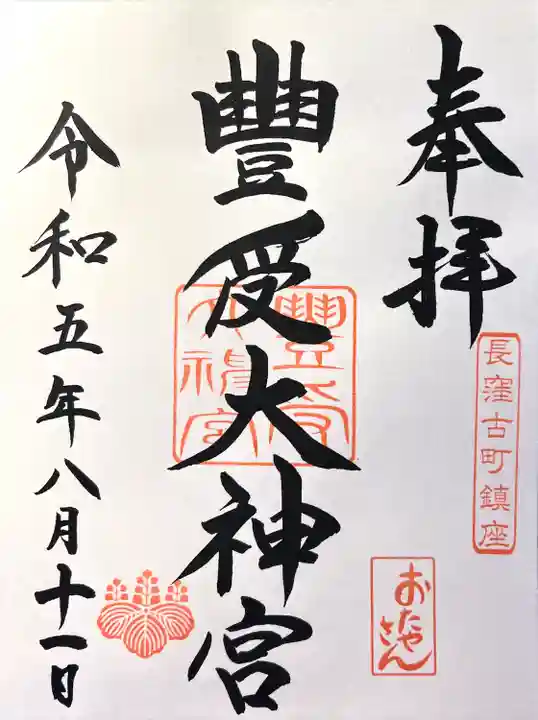 奉拝
長窪古町鎮座
おたやさん
豐受大神宮
豐受大神宮
令和五年八月十一日